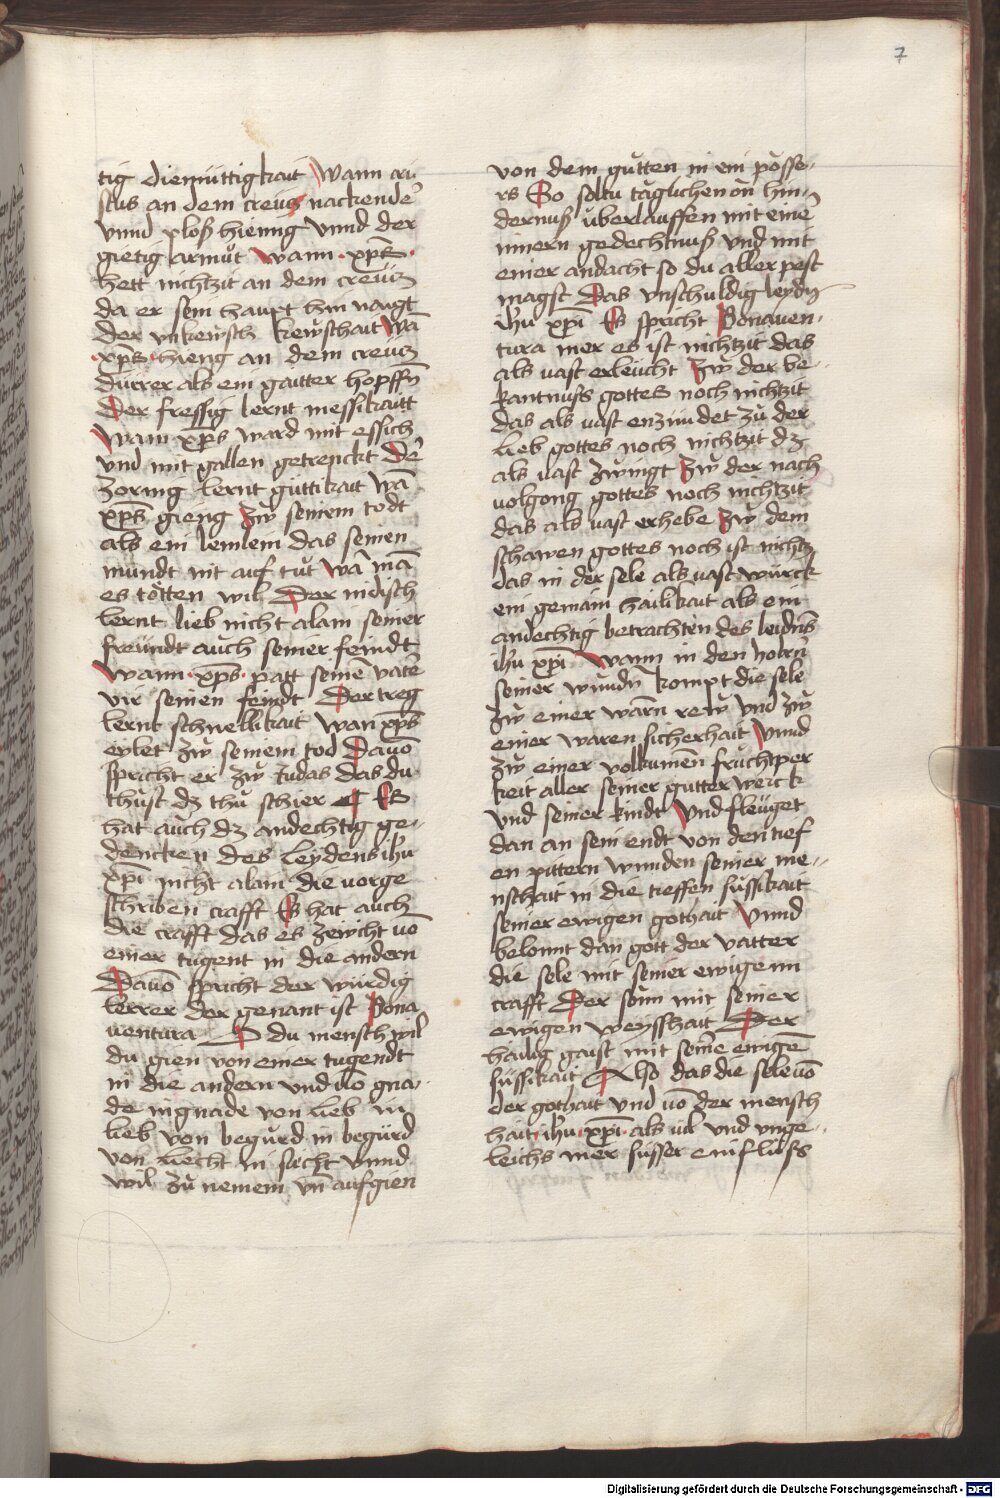 7
tig diemüttigkait Wann cri
stus an dem creucz nackende
vnnd ploß hienng vnnd der
gietig armut wann · xp̄s ·
hett nichtzit an dem creücz
da er sein haupt hin naigt
Der vnkeüsch keüschait wā
· xp̄s · hieng an dem creücz
dürrer als ein gaitter hopffn̄
Der fressig lernt messikaitt
Wann xp̄s ward mit essich
vnd mit gallen getrenckt De
zornig lernt güttikait wā
xp̄s gieng Zw seinem todt
als ein lemlein das seinen
mundt nit auf tut wā mā
es tötten wil Der nidisch
lernt lieb nicht alain seiner
freündt auch seiner feindt
Wann · xp̄s · patt seinē vate
vir seinen feindt Der treg
lernt schnellikait wan xp̄s
eylet zw seinem tod Dauō
spricht er zw Judas das du
thust dz thu schier Es
hat auch dz andechtig ge-
dencken des leydens ihu
xp̄i nicht alain die vorge
schriben crafft Es hat auch
die crafft das es zeücht vō
einer tugent in die andern
Dauō spricht der würdig
lerrer der genant ist Bona
uentura O du mensch wil
du gien von einer tugendt
in die andern vnd vō gna-
de in gnade von lieb in
lieb von begurd in begürd
von liecht in liecht vnnd
wil zu nemein vn̄ aufgien
von dem gutten in ein pösse-
rs So soltu täglichen on hin-
dernuß überlauffen mit einē
innern gedechtnuß vnd mit
einer andacht so du aller pest
magst Das vnschuldig leydn̄
ihu xp̄i Es spricht Bonauen-
tura mer es ist nichtzit das
als vast erleücht Zw der be-
kantnuß gottes noch nichtzit
das als vast enzündet zu der
lieb gottes noch nichtzit dz
als vast zwingt Zw der nach
volgong gottes noch nichtzit
das als vast erhebe Zw dem
schawen gottes noch ist nichtz
das in der sele als vast würck
ein gemain hailikait als ein
andechtig betrachten des leidns
ihu xp̄i Wann in den holrn
seiner wundn̄ kompt die sele
Zw einer warn̄ rew vnd zw
einer waren sicherhait Vnnd
zw einer volkumen̄ fruchtper
keit aller seiner gutter werck
vnd seiner kindt Vnd fleüget
dan an sein endt von den tief
en pittern wunden seiner me-
nschait in die tieffen süssikait
seiner ewigen gothait Vnnd
belonnt dan gott der vatter
die sele mit seiner ewigenn
crafft Der sunn mit seiner
ewigen weysshait Der
hailig gaist mit seinē ewigē
süssikait Also das die sele vō
der gothait vnd vō der mensch
hait · ihu · xp̄i · als vil vnd vnge-
leichs mer süsser einflusss
Digitalisierung gefördert durch die Deutsche Forschungsgemeinschaft - DFG